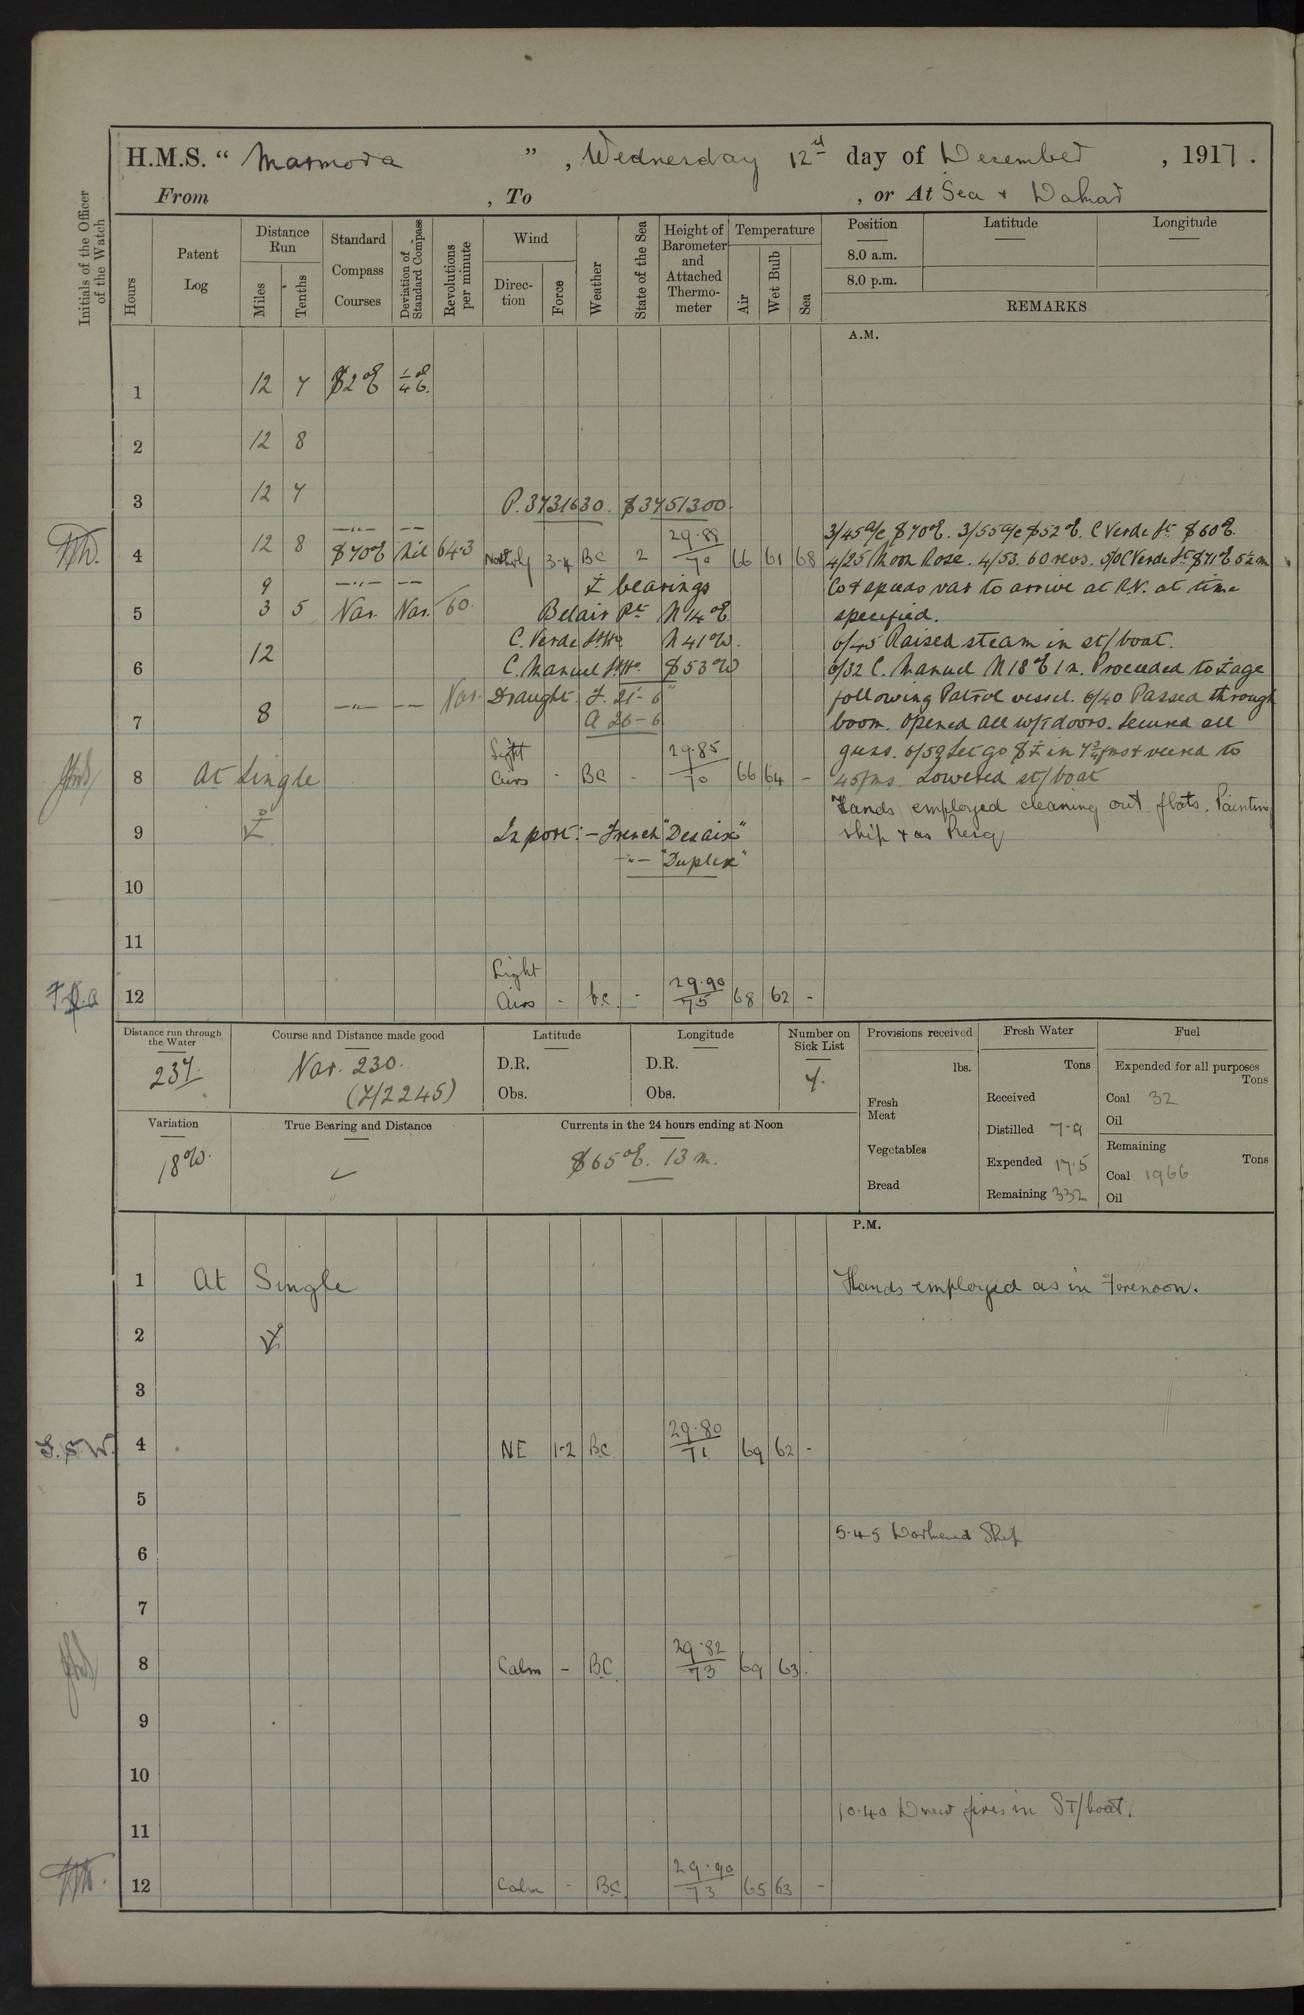 H.M.S. "Marmora", Wednesday 12th day of December, 1917.
From , To , or At Sea & Dakar
Initials of the Officer of the Watch
Hours
Patent Log
Distance Run
Miles
Tenths
Standard Compass Courses
Deviation of Standard Compass
Revolutions per minute
Wind
Direction
Force
Weather
State of the Sea
Height of Barometer and Attached Thermometer
Temperature
Air
Wet Bulb
Sea
Position Latitude Longitude
8.0 a.m.
8.0 p.m.
REMARKS
A.M.
1 12 7 S2°E
2 12 8
3 12 7 P. 3731630. S 3751300
3/45 a/c S70°E. 3/55 a/c S52°E. C Verde Lt S60°E.
4 12 8 S70°E Nil 64.3 Northerly 3-4 BC 2 29.88/70 66 61 68
4/25 Moon Rose. 4/53. 60 revs. 5/0 C Verde Lt S71°E 5½m
9 bearings
Co & speeds var to arrive at R.V. at time
5 3 5 Var. Var. 60. Belair Pt N14°E
specified.
C. Verde Lt Ho N41°W.
6/45 Raised steam in st/boat.
6 12 C. Manuel Lt Ho S53°W
6/32 C. Manuel N18°E 1m. Proceeded to ⚓age
Var. Draught. F. 21'-6"
following Patrol vessel. 6/40 Passed through
7 8 A 26-6
boom. Opened all W/T doors. Secured all
guns. 6/59 Let go S⚓ in 7¾fms & veered to
8 At Single Light Airs - BC - 29.85/70 66 64 -
45fms. Lowered st/boat
Hands employed cleaning out flats. Painting
9 ⚓ In port:- French "Desaix"
ship & as Req
-"- "Dupleix"
10
11
12 Light Airs - bc. - 29.90/75 68 62 -
Distance run through the Water
237.
Course and Distance made good
Var. 230.
(7/2245)
Latitude
D.R.
Obs.
Longitude
D.R.
Obs.
Number on Sick List
4.
Provisions received
lbs.
Fresh Meat
Vegetables
Bread
Fresh Water
Tons
Received
Distilled 7.9
Expended 17.5
Remaining 332
Fuel
Expended for all purposes
Tons
Coal 32
Oil
Remaining
Tons
Coal 1966
Oil
Variation
18°W.
True Bearing and Distance
Currents in the 24 hours ending at Noon
S65°E. 13m.
P.M.
1 At Single Hands employed as in Forenoon.
2 ⚓
3
G.S.W. 4 NE 1-2 BC 29.80/71 69 62 -
5
5.45 Darkened Ship
6
7
8 Calm - BC 29.82/73 69 63
9
10
10.40 Drew fires in ST/boat.
11
12 Calm - BC. 29.90/73 65 63 -